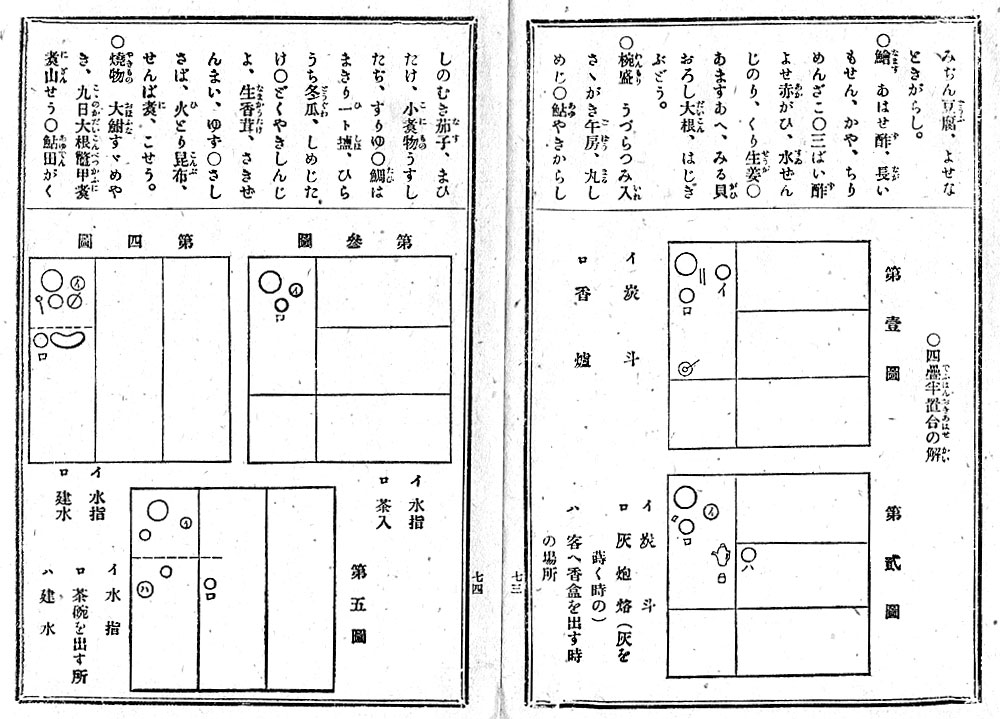 みぢん豆腐、よせな
ときがらし。
〇鱠 あはせ酢、長い
もせん、かや、ちり
めんざこ〇三ばい酢
よせ赤がひ、水せん
じのり、くり生姜〇
あますあへ、みる貝
おろし大根、はじぎ
ぶどう。
〇椀盛 うづらつみ入
さゝがき午房、丸し
めじ〇鮎やきからし
〇四疊半置合の解
第壹圖
イ 炭斗
ロ 香爐
イ
ロ
第貳圖
イ 炭斗
ロ 灰炮烙(灰を
蒔く時の)
ハ 客へ香盒を出す時
の場所
イ
ロ
ハ
七三
しのむき茄子、まひ
たけ、小煑物うすし
たぢ、すりゆ〇鯛は
まきり一ト鹽、ひら
うち冬瓜、しめじた
け〇どくやきしんじ
よ、生香茸、さきせ
んまい、ゆず〇さし
さば、火とり昆布、
せんば煑、こせう。
〇燒物 大鮒すゞめや
き、九日大根鼈甲煑
煑山せう〇鮎田がく
第參圖
イ 水指
ロ 茶入
イ
ロ
第四圖
イ 水指
ロ 建水
イ
ロ
第五圖
イ 水指
ロ 茶碗を出す所
ハ 建水
イ
ロ
ハ
七四